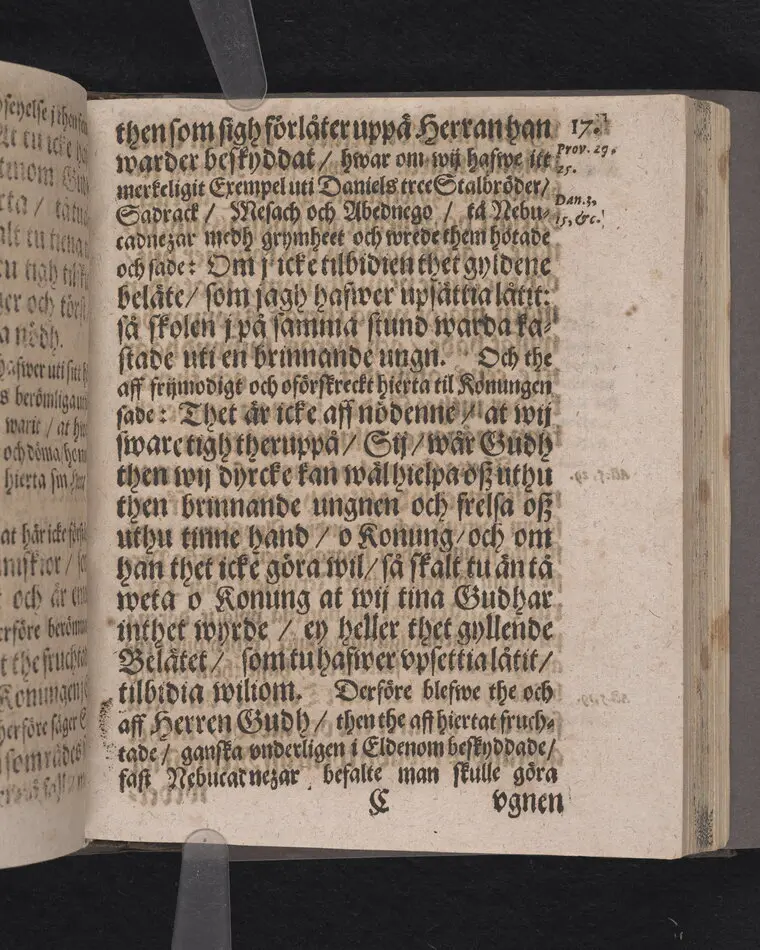 then som sigh förlåter uppå Herran han
warder beskyddat / hwar om wij hafwe itt
merkeligit Exempel uti Daniels tree Stalbröder /
Sadrack / Mesach och Abednego / tå Nebu-
cadnezar medh grymheet och wrede them hotade
och sade: Om j icke tilbidien thet gyldene
beläte / som jagh hafwer upsättia låtit:
så skolen j på samma stund warda ka-
stade uti en brinnande ungn. Och the
aff frijmodigt och oförskreckt hierta til Konungen
sade: Thet är icke aff nödenne / at wij
sware tigh theruppå / Sij / wår Gudh
then wij dyrcke kan wäl hielpa oß uthu
then brinnande ungnen och frelsa oß
uthu tinne hand / o Konung / och om
han thet icke göra wil / så skalt tu än tå
weta o Konung at wij tina Gudhar
inthet wyrde / ey heller thet gyllende
Belätet / som tu hafwer vpsettia låtit /
tilbidia wiliom. Derföre blefwe the och
aff Herren Gudh / then the aff hiertat fruch-
tade / ganska vnderligen i Eldenom beskyddade /
fast Nebucadnezar befalte man skulle göra
C vgnen
17.
Prov. 29.
25.
Dan. 3.
15, &c.